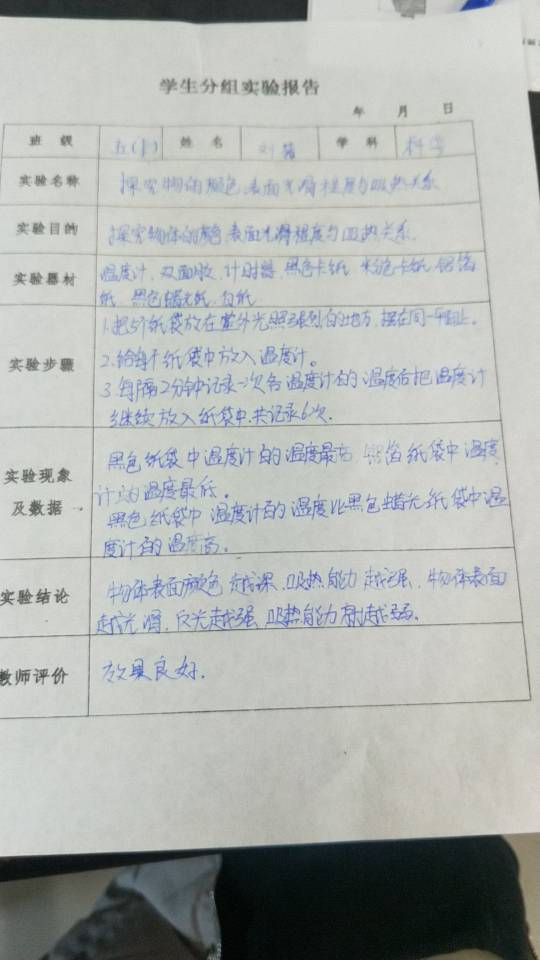 学生分组实验报告
年 月 日
班 级 五(1) 姓 名 学 科 科学
实验名称 探究物的颜色、表面光滑程度与吸热关系
实验目的 探究物体的颜色、表面光滑程度与吸热关系.
实验器材 温度计、双面胶、计时器、黑色卡纸 粉色卡纸 铝箔
纸、黑色蜡光纸、白纸
实验步骤
1.把5个纸袋放在室外光照强烈的地方,摆在同一平面上。
2.给每个纸袋中放入温度计。
3.每隔2分钟记录一次各温度计的温度后把温度计
继续放入纸袋中.共记录6次.
实验现象
及数据
黑色纸袋中温度计的温度最高 铝箔纸袋中温度
计的温度最低。
黑色纸袋中温度计的温度比黑色蜡光纸袋中温
度计的温度高。
实验结论
物体表面颜色越深、吸热能力越强、物体表面
越光滑、反光越强、吸热能力越弱.
教师评价 效果良好.